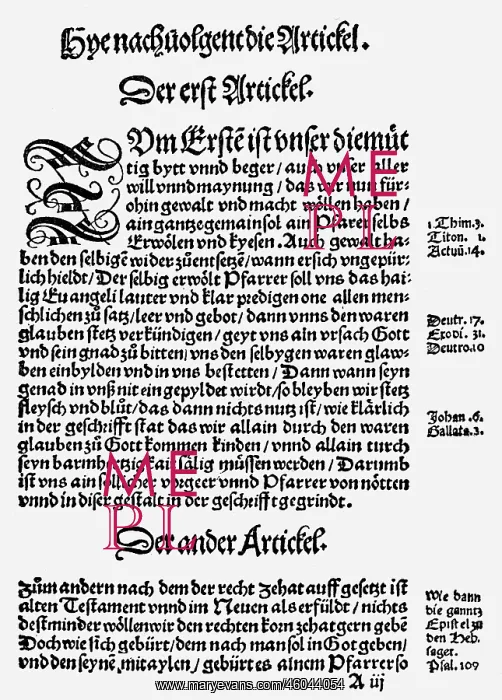 Hye nachuolgent die Artickel.
Der erst Artickel.
Zum Erstē ist vnser diemüt
tig bytt vnnd beger / auch vnser aller
will vnnd maynung / das wir nun für-
ohin gewalt vnd macht wöllen haben /
ain gantze gemain sol ain Pfarer selbs
Erwölen vnd kyesen. Auch gewalt ha-
ben den selbigē wider zůentsetzē / wann er sich vngepür-
lich hieldt / Der selbig erwölt Pfarrer soll vns das hai-
lig Euangeli lauter vnd klar predigen one allen men-
schlichen zůsatz / leer vnd gebot / dann vnns den waren
glauben stetz verkündigen / geyt vns ain vrsach Gott
vnd sein gnad zů bitten / vns den selbygen waren glaw-
ben einbylden vnd in vns bestetten / Dann wann seyn
genad in vnß nit ein gepyldet wirdt / so bleyben wir stetz
fleysch vnd blůt / das dann nichts nutz ist / wie klärlich
in der geschrifft stat das wir allain durch den waren
glauben zů Gott kommen kinden / vnnd allain turch
seyn barmhertzigkait sälig müssen werden / Darumb
ist vns ain sollicher vorgeer vnnd Pfarrer von nötten
vnnd in diser gestalt in der geschrifft gegrindt.
1 Thim. 3.
Titon. 1.
Actuū. 14.
Deutr. 17.
Exodi. 31.
Deutro. 10
Johan. 6.
Gallata. 3.
Der ander Artickel.
Zům andern nach dem der recht Zehat auff gesetzt ist
alten Testament vnnd im Neuen als erfüldt / nichts
destminder wöllen wir den rechten korn zehat gern gebē
Doch wie sich gebürt / dem nach man sol in Got geben /
vnd den seynē mitaylen / gebürt es ainem Pfarrer so
Wie dann
die gantz
Epistel zů
den Heb.
saget.
Psal. 109
A iij
ME
PL
ME
PL
www.maryevans.com/46044054